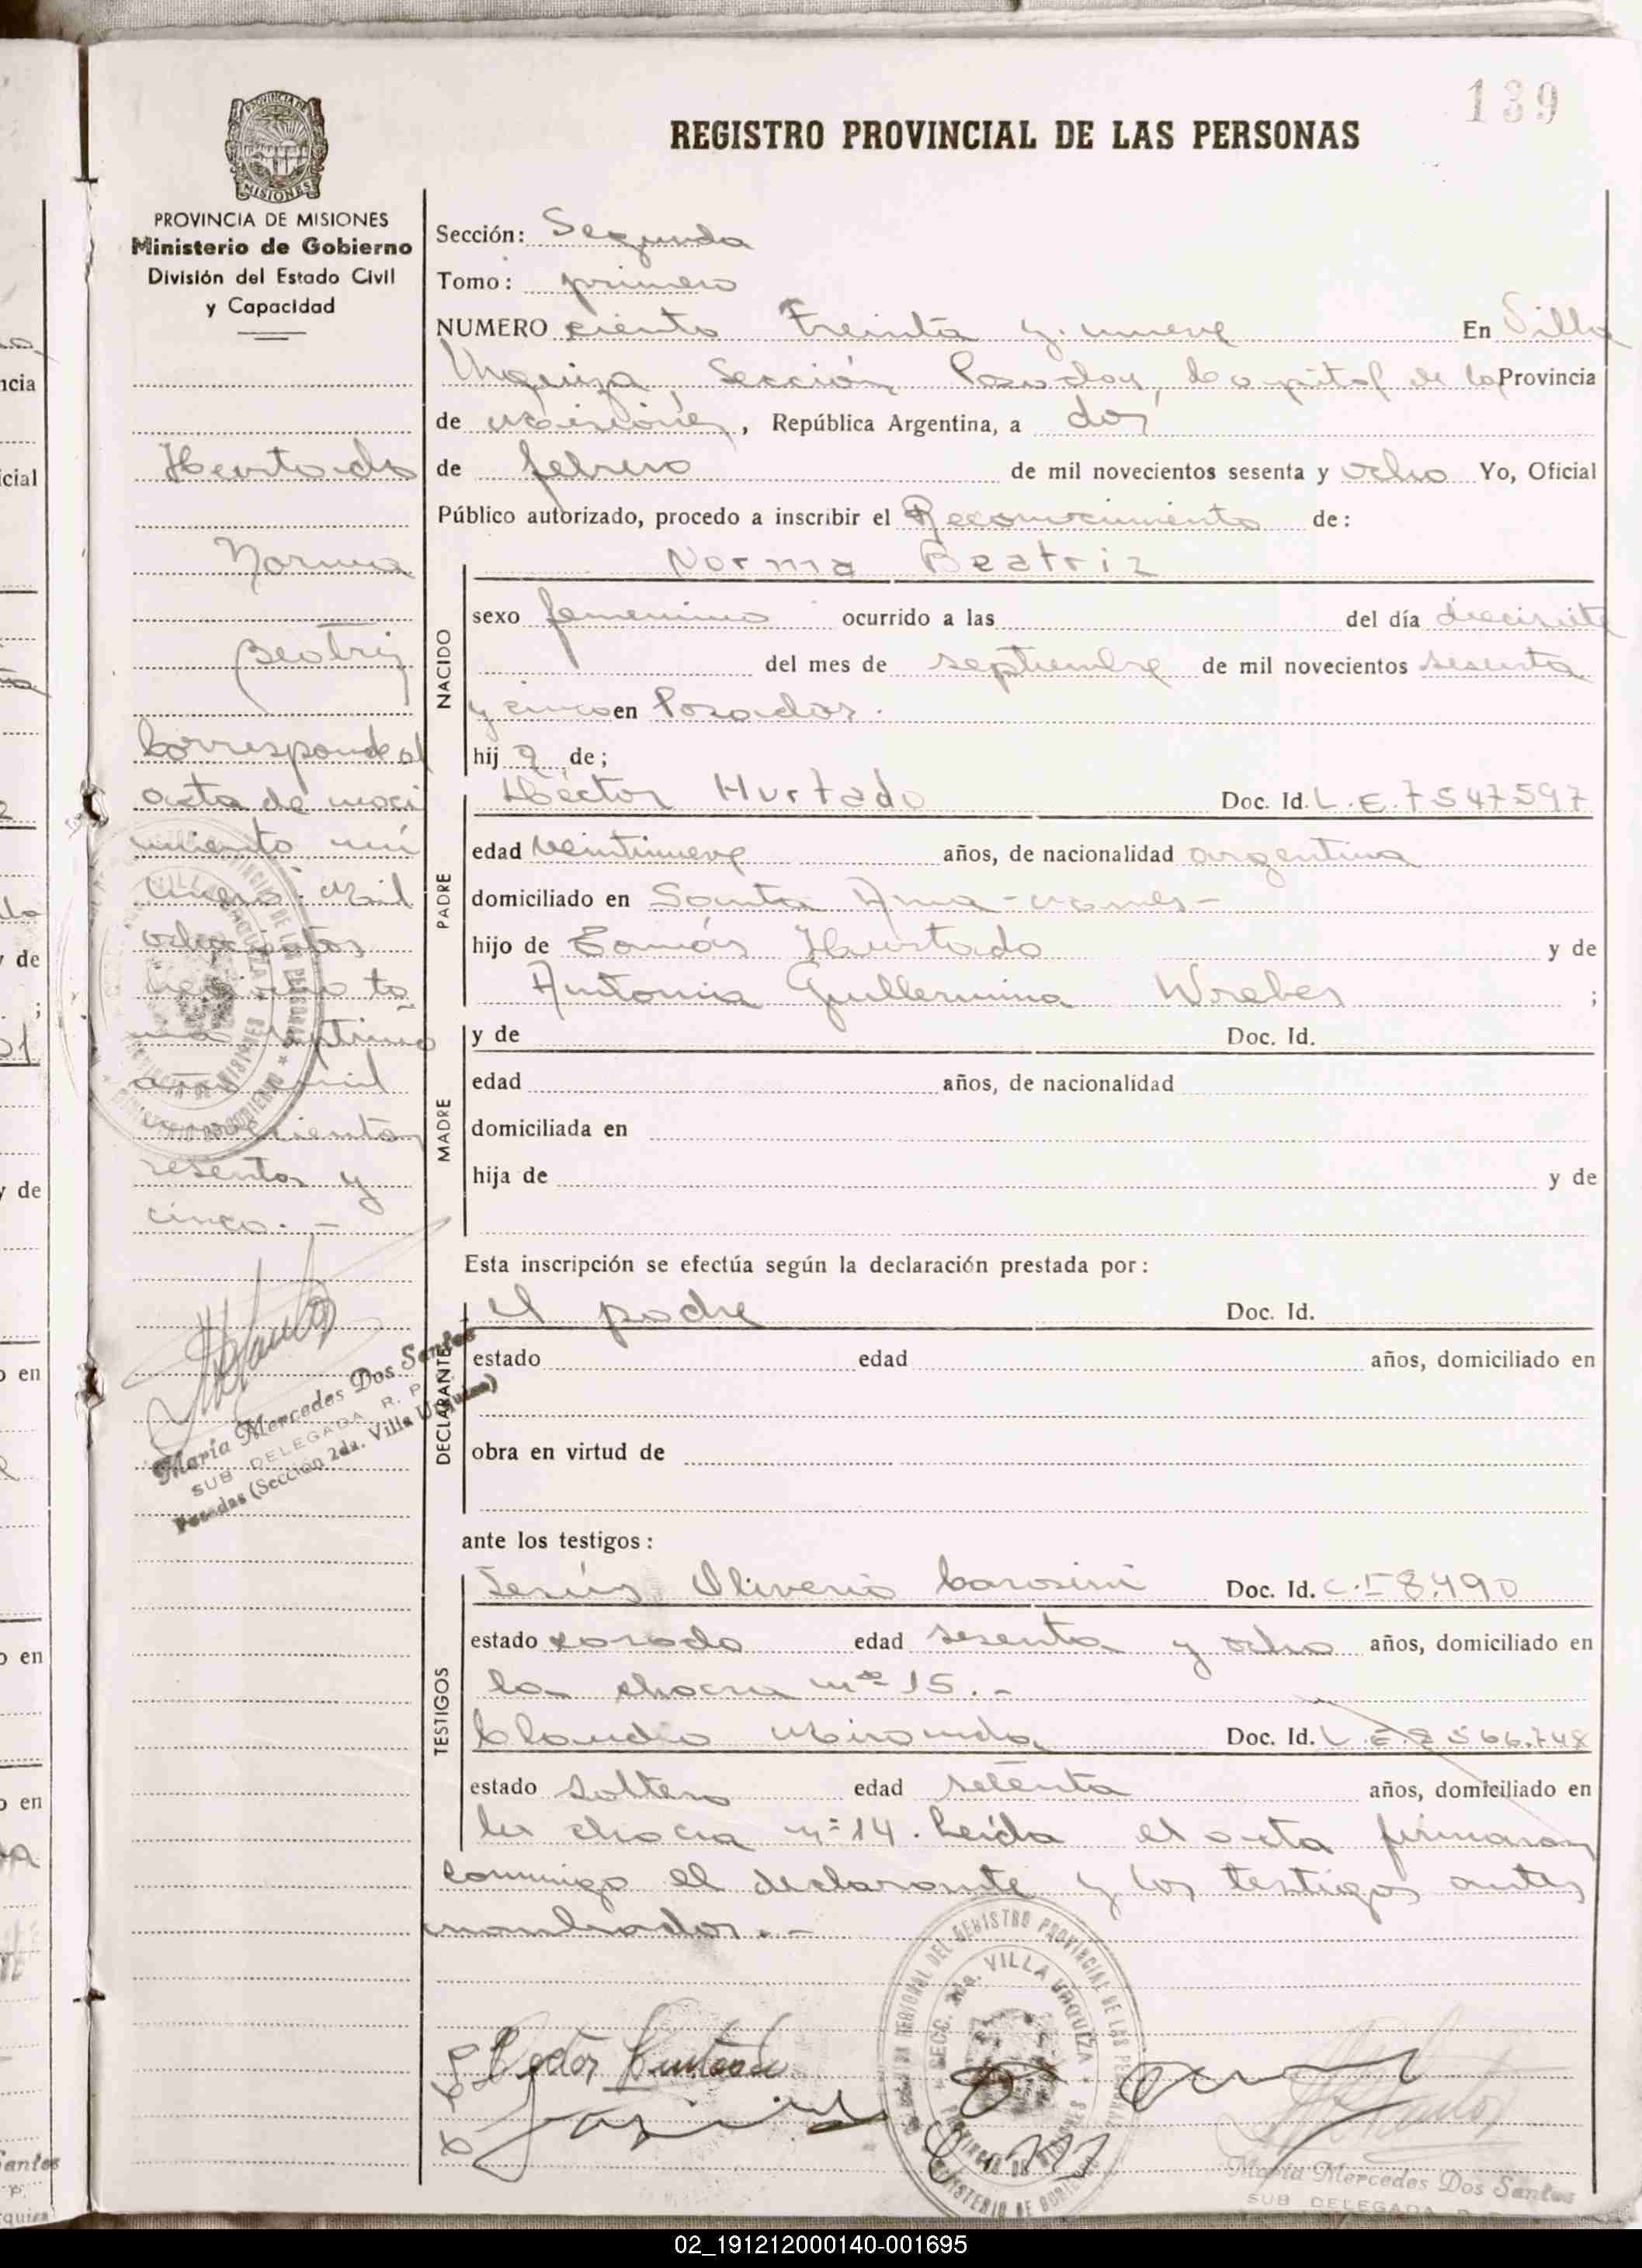 139
REGISTRO PROVINCIAL DE LAS PERSONAS
PROVINCIA DE MISIONES
Ministerio de Gobierno
División del Estado Civil
y Capacidad
Hurtado
Norma
Beatriz
Corresponde al
acta de naci
miento nú
mero: mil
ochocientos
to
mo septimo
año mil
novecientos
sesenta y
cinco.-
María Mercedes Dos Santos
SUB DELEGADA R. P.
Posadas (Sección 2da. Villa Urquiza)
Sección: Segunda
Tomo: primero
NUMERO ciento treinta y nueve En Villa
Urquiza Sección Posadas, Capital de la Provincia
de Misiones, República Argentina, a dos
de febrero de mil novecientos sesenta y ocho Yo, Oficial
Público autorizado, procedo a inscribir el Reconocimiento de:
Norma Beatriz
NACIDO
sexo femenino ocurrido a las del día diecisiete
del mes de septiembre de mil novecientos sesenta
y cinco en Posadas.
hij a de;
PADRE
Héctor Hurtado Doc. Id. L.E. 7547597
edad veintinueve años, de nacionalidad argentina
domiciliado en Santa Ana - Mnes-
hijo de Tomás Hurtado y de
Antonia Guillermina Wreber ;
MADRE
y de Doc. Id.
edad años, de nacionalidad
domiciliada en
hija de y de
Esta inscripción se efectúa según la declaración prestada por:
DECLARANTE
el padre Doc. Id.
estado edad años, domiciliado en
obra en virtud de
ante los testigos:
TESTIGOS
Jesús Oliverio Carosini Doc. Id. C.I 8.490
estado casado edad sesenta y ocho años, domiciliado en
la chacra nº 15.-
Claudio Miranda Doc. Id. L.E. 2566.748
estado soltero edad setenta años, domiciliado en
la chacra nº 14. Leída el acta firmaron
conmigo el declarante y los testigos antes
nombrados.-
SECC. 2da. VILLA URQUIZA
Hector Hurtado
María Mercedes Dos Santos
SUB DELEGADA
02_191212000140-001695